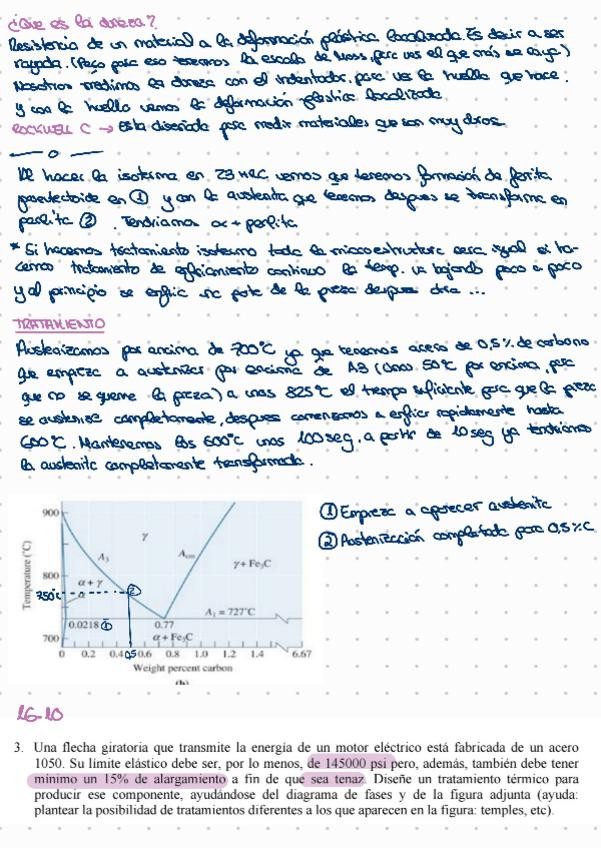 ¿Que es la dureza?
Resistencia de un material a la deformación plástica localizada. Es decir a ser
rayada. (Pego para eso tenemos la escala de Moss, para ver el que más se raya)
Nosotros medimos la dureza con el indentador, para ver la huella que hace.
y con la huella vemos la deformación plástica localizada
ROCKWELL C → Esta diseñada para medir materiales que son muy duros.
Al hacer la isoterma en 23 HRC vemos que tenemos formación de ferrita
proeutectoide en ① y con la austenita que tenemos despues se transforma en
perlita ②. Tendriamos α + perlita
* Si hacemos tratamiento isotermo toda la microestructura sera igual si ha-
cemos tratamiento de enfriamiento continuo la temp. va bajando poco a poco
y al principio se enfria una parte de la pieza despues otra ...
TRATAMIENTO
Austenizamos por encima de 700°C ya que tenemos acero de 0,5% de carbono
que empieza a austenizar por encima de A3 (Unos 50°C por encima, para
que no se queme la pieza) a unas 825°C el tiempo suficiente para que la pieza
se austenice completamente, despues comenzamos a enfriar rapidamente hasta
600°C. Mantenemos los 600°C unos 100 seg, a partir de 10 seg ya tendriamos
la austenita completamente transformada.
① Empieza a aparecer austenita
② Austenización completada para 0,5% C
Temperature (°C)
900
γ
A₃
Acm
γ + Fe₃C
800
α + γ
750°C
②
α
A₁ = 727°C
0.0218 ①
0.77
700
α + Fe₃C
0 0.2 0.4 0,5 0.6 0.8 1.0 1.2 1.4 6.67
Weight percent carbon
(b)
16-10
3. Una flecha giratoria que transmite la energía de un motor eléctrico está fabricada de un acero
1050. Su límite elástico debe ser, por lo menos, de 145000 psi pero, además, también debe tener
mínimo un 15% de alargamiento a fin de que sea tenaz. Diseñe un tratamiento térmico para
producir ese componente, ayudándose del diagrama de fases y de la figura adjunta (ayuda:
plantear la posibilidad de tratamientos diferentes a los que aparecen en la figura: temples, etc).